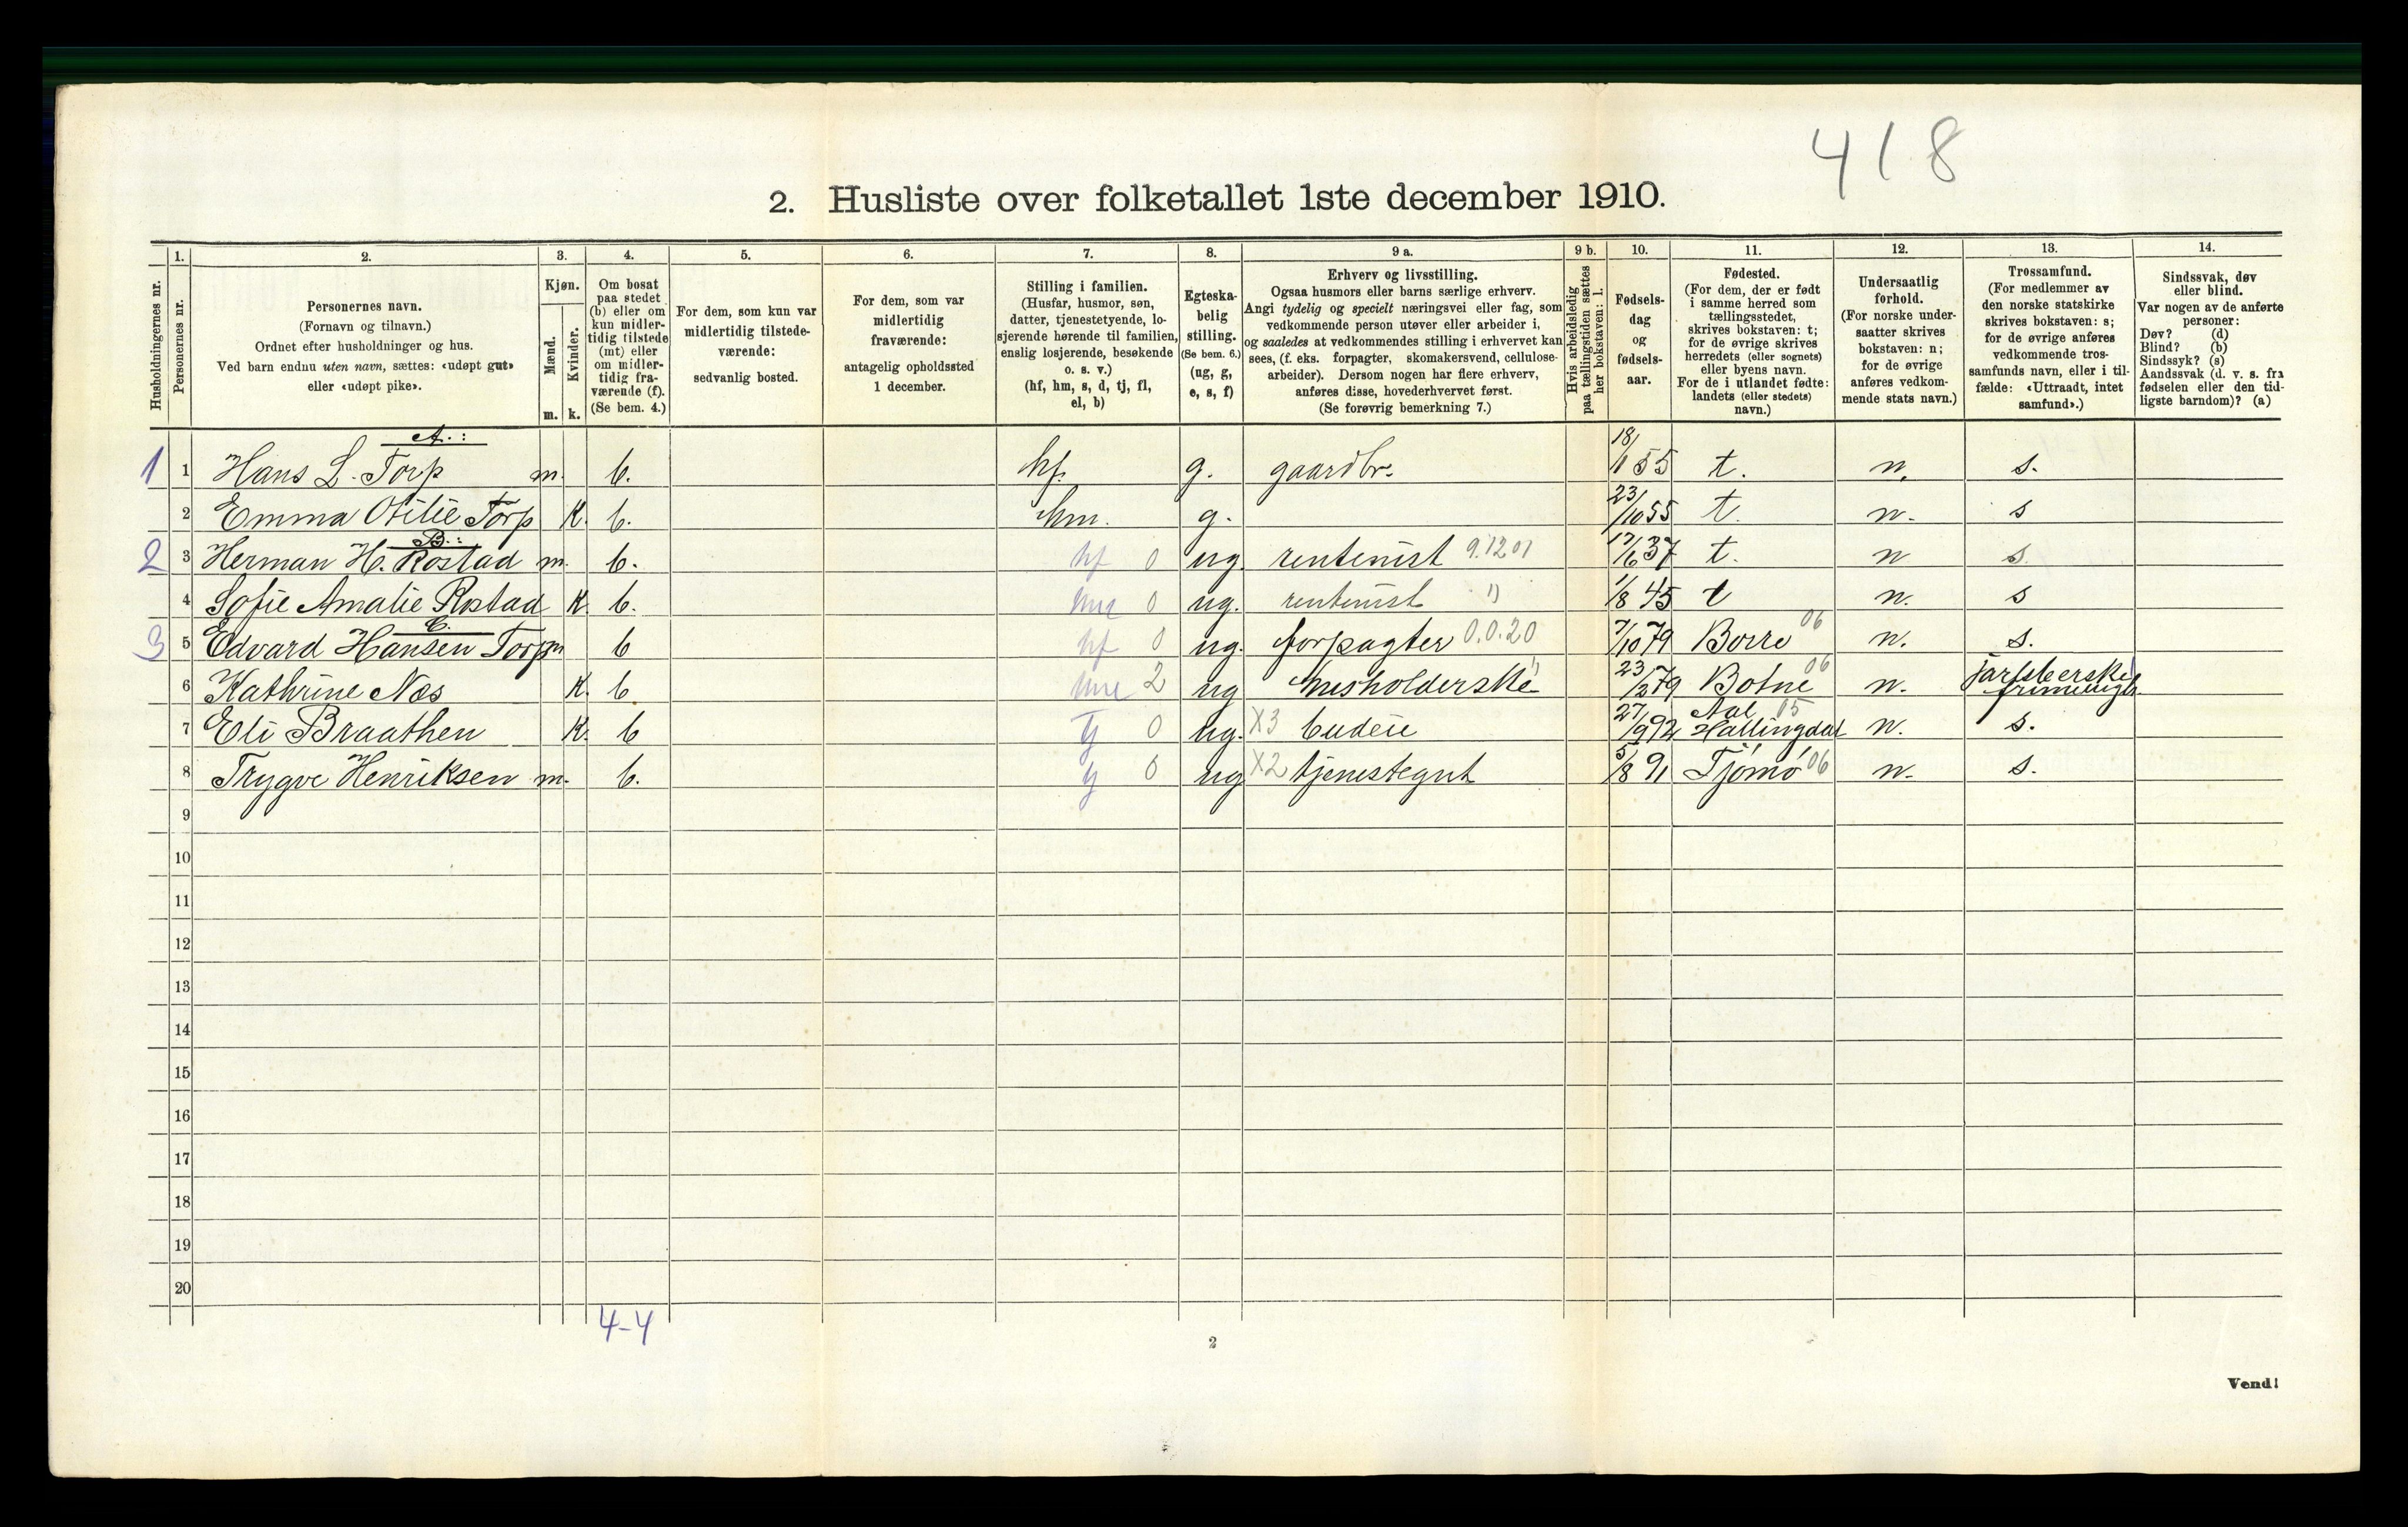 418
2. Husliste over folketallet 1ste december 1910.
Husholdningernes nr.
1.
Personernes nr.
2.
Personernes navn.
(Fornavn og tilnavn.)
Ordnet efter husholdninger og hus.
Ved barn endnu uten navn, sættes: «udøpt gut»
eller «udøpt pike».
3.
Kjøn.
Mænd.
Kvinder.
m. k.
4.
Om bosat
paa stedet
(b) eller om
kun midler-
tidig tilstede
(mt) eller
om midler-
tidig fra-
værende (f).
(Se bem. 4.)
5.
For dem, som kun var
midlertidig tilstede-
værende:
sedvanlig bosted.
6.
For dem, som var
midlertidig
fraværende:
antagelig opholdssted
1 december.
7.
Stilling i familien.
(Husfar, husmor, søn,
datter, tjenestetyende, lo-
sjerende hørende til familien,
enslig losjerende, besøkende
o. s. v.)
(hf, hm, s, d, tj, fl,
el, b)
8.
Egteska-
belig
stilling.
(Se bem. 6.)
(ug, g,
e, s, f)
9 a.
Erhverv og livsstilling.
Ogsaa husmors eller barns særlige erhverv.
Angi tydelig og specielt næringsvei eller fag, som
vedkommende person utøver eller arbeider i,
og saaledes at vedkommendes stilling i erhvervet kan
sees, (f. eks. forpagter, skomakersvend, cellulose-
arbeider). Dersom nogen har flere erhverv,
anføres disse, hovederhvervet først.
(Se forøvrig bemerkning 7.)
9 b.
Hvis arbeidsledig
paa tællingstiden sættes
her bokstaven: l.
10.
Fødsels-
dag
og
fødsels-
aar.
11.
Fødested.
(For dem, der er født
i samme herred som
tællingsstedet,
skrives bokstaven: t;
for de øvrige skrives
herredets (eller sognets)
eller byens navn.
For de i utlandet fødte:
landets (eller stedets)
navn.)
12.
Undersaatlig
forhold.
(For norske under-
saatter skrives
bokstaven: n;
for de øvrige
anføres vedkom-
mende stats navn.)
13.
Trossamfund.
(For medlemmer av
den norske statskirke
skrives bokstaven: s;
for de øvrige anføres
vedkommende tros-
samfunds navn, eller i til-
fælde: «Uttraadt, intet
samfund».)
14.
Sindssvak, døv
eller blind.
Var nogen av de anførte
personer:
Døv? (d)
Blind? (b)
Sindssyk? (s)
Aandssvak (d. v. s. fra
fødselen eller den tid-
ligste barndom)? (a)
A.:
1 1 Hans L. Torp m. b. hf. g. gaardbr. 18/1 55 t. n. s.
2 Emma Otilie Torp K. b. hm. g. 23/10 55 t. n. s
B.:
2 3 Herman H. Rostad m. b. hf 0 ug. rentenist 9.12 01 17/6 37 t. n s.
4 Sofie Amalie Rostad K. b. 0 ug. rentenist 1/8 45 t n. s
C.
3 5 Edvard Hansen Torp m b hf 0 ug. forpagter 0.0.20 7/10 79 Borre 06 n. s.
6 Kathrine Næs K. b 2 ug husholderske 23/2 79 Botne 06 n. jarlsberske
7 Eli Braathen K. b tj 0 ug. X3 budeie 27/9 92 Aal 05 Hallingdal n. s.
8 Trygve Henriksen m. b. tj 0 ug X2 tjenestegut 5/8 91 Tjømø 06 n. s.
9
10
11
12
13
14
15
16
17
18
19
20
4-4
2
Vend!